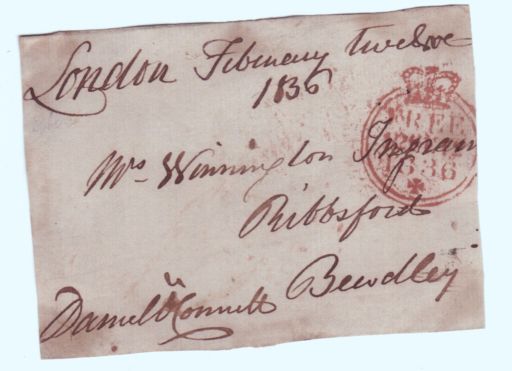 London February twelve
1836
Mrs Winnington Ingram
Ribbsford
Bewdley
Daniel O'Connell
FREE
1836